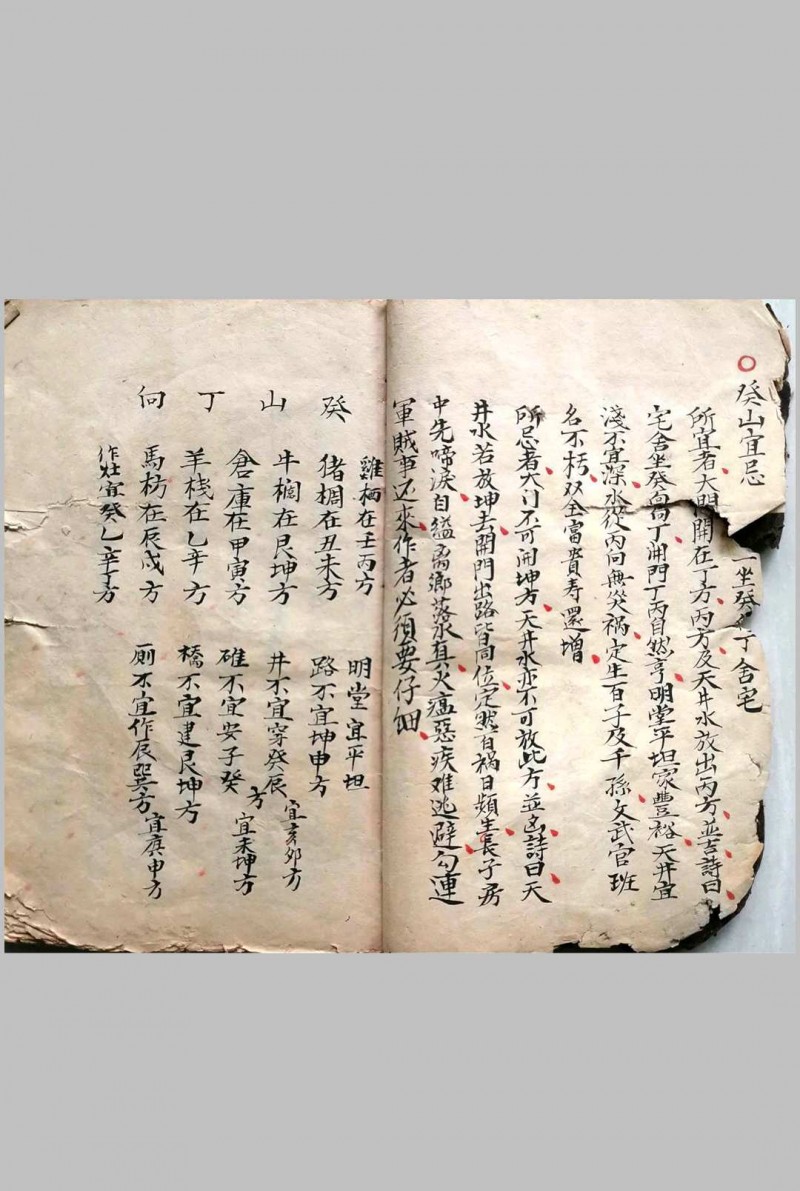 癸山宜忌
一坐癸向丁舍宅
所宜者大門開在丁方丙方及天井水放出丙方並吉詩曰
宅舍坐癸向丁開門丁丙自然亨明堂平坦家豐裕天井宜
淺不宜深水從內向無災禍定生百子及千孫文武官班
名不朽双全富貴寿還增
所忌者大门不可開坤方天井水亦不可放此方並凶詩曰天
井水若放坤去開門出路皆同位定然百禍日頻生長子房
中先啼淚自縊离鄉落水真火瘟惡疾难逃避勾連
軍賊事还來作者必須要仔細
癸山丁向
雞栖在壬丙方
猪棩在丑未方
牛棩在艮坤方
倉庫在甲寅方
羊棧在乙辛方
馬枋在辰戌方
作灶宜癸乙辛丁方
明堂宜平坦
路不宜坤申方
井不宜穿癸辰方宜亥卯方
碓不宜安子癸方宜未坤方
橋不宜建艮坤方
厠不宜作辰巽方宜庚申方